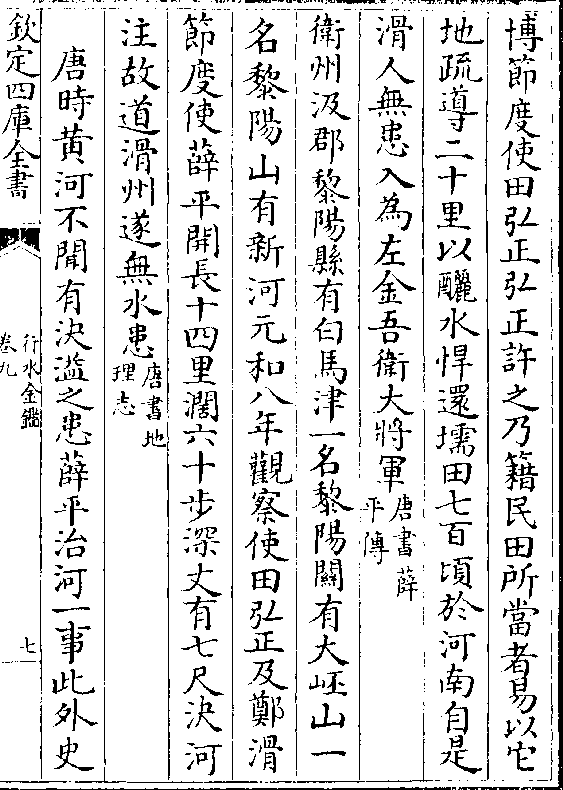 博節度使田弘正弘正許之乃籍民田所當者易以它
地疏導二十里以釃水悍還壖田七百頃於河南自是
滑人無患入為左金吾衛大將軍唐書薛平傳
衛州汲郡黎陽縣有白馬津一名黎陽關有大岯山一
名黎陽山有新河元和八年觀察使田弘正及鄭滑
節度使薛平開長十四里濶六十步深丈有七尺決河
注故道滑州遂無水患唐書地理志
唐時黄河不聞有決溢之患薛平治河一事此外史
欽定四庫全書
行水金鑑
卷九
七